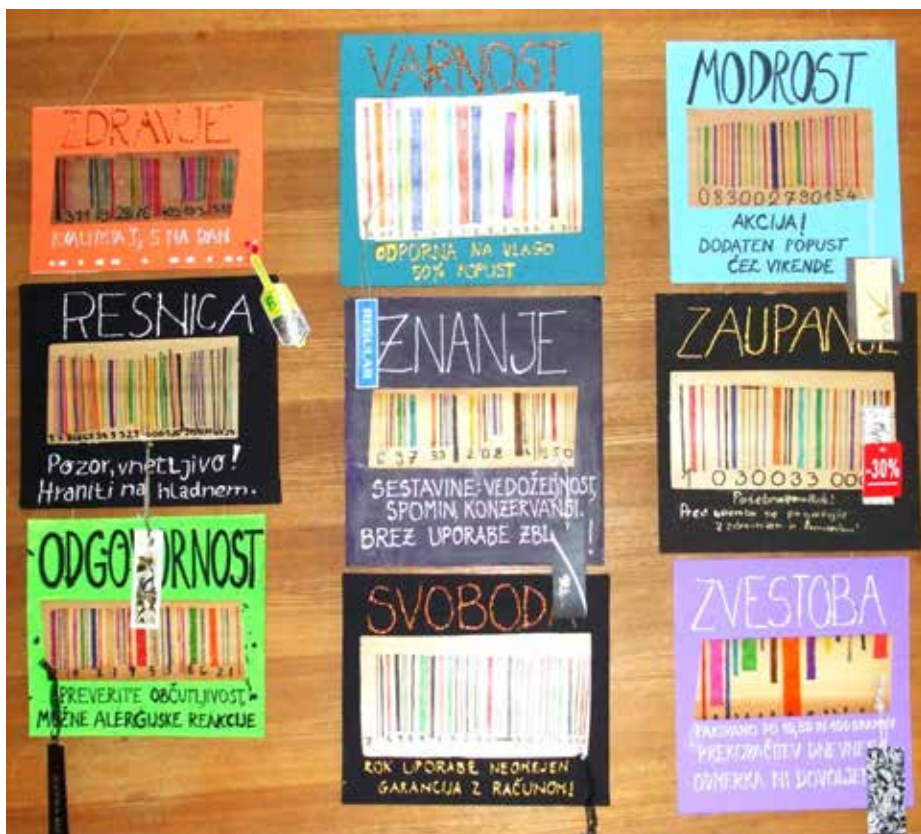 ZDRAVJE
NA DAN
RESNICA
Pozor, vnetljivo!
Hraniti na hladnem.
ODGOVORNOST
PREVERITE OBČUTLJIVOST,
MOŽNE ALERGIJSKE REAKCIJE
VARNOST
ODPORNA NA VLAGO
50% POPUST
REGULAR
ZNANJE
SESTAVINE: VEDOŽELJNOST,
SPOMIN, KONZERVANSI.
BREZ UPORABE
SVOBODA
ROK UPORABE NEOMEJEN
GARANCIJA Z RAČUNOM!
MODROST
083002790154
AKCIJA!
DODATEN POPUST
ČEZ VIKENDE
ZAUPANJE
1 030033
-30%
Pred uporabo se
z zdravnikom
ZVESTOBA
PAKIRANO PO 10, 50 IN 100 GRAMOV
PREKORAČITEV DNEVNEGA
ODMERKA NI DOVOLJENA